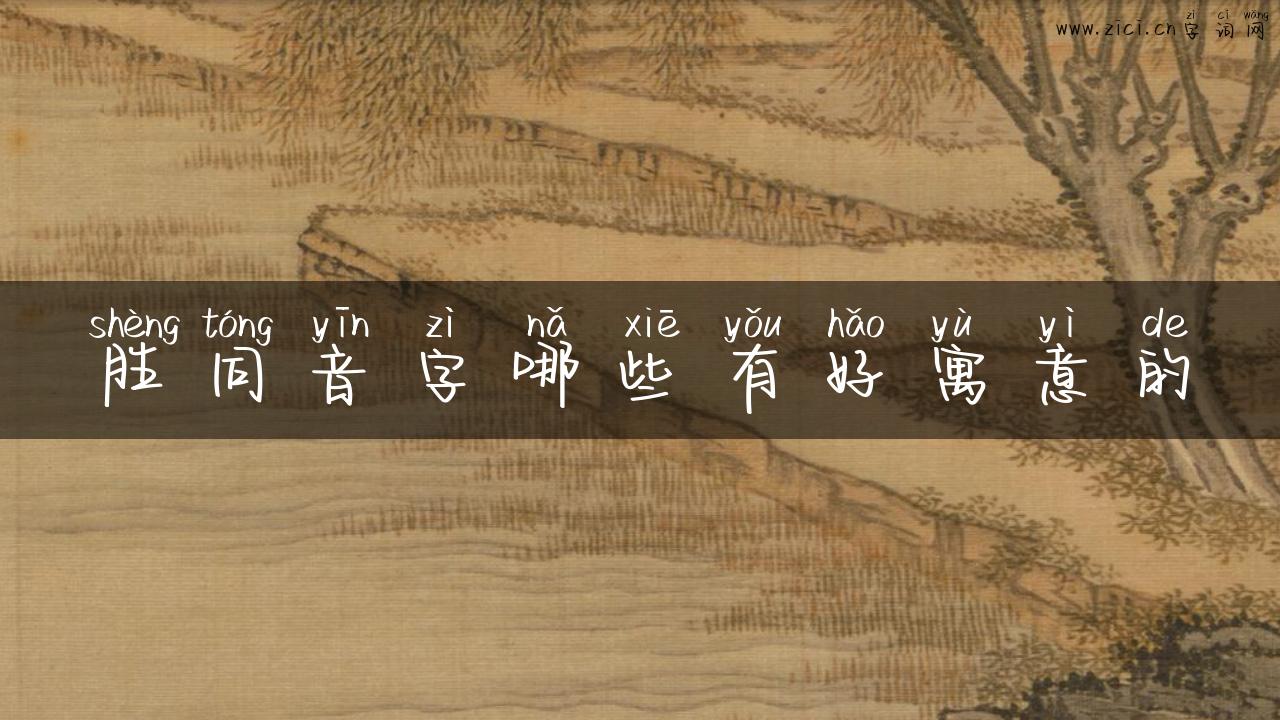 zì cí wǎng
www.zici.cn字词网
shèng tóng yīn zì nǎ xiē yǒu hǎo yù yì de
胜同音字哪些有好寓意的